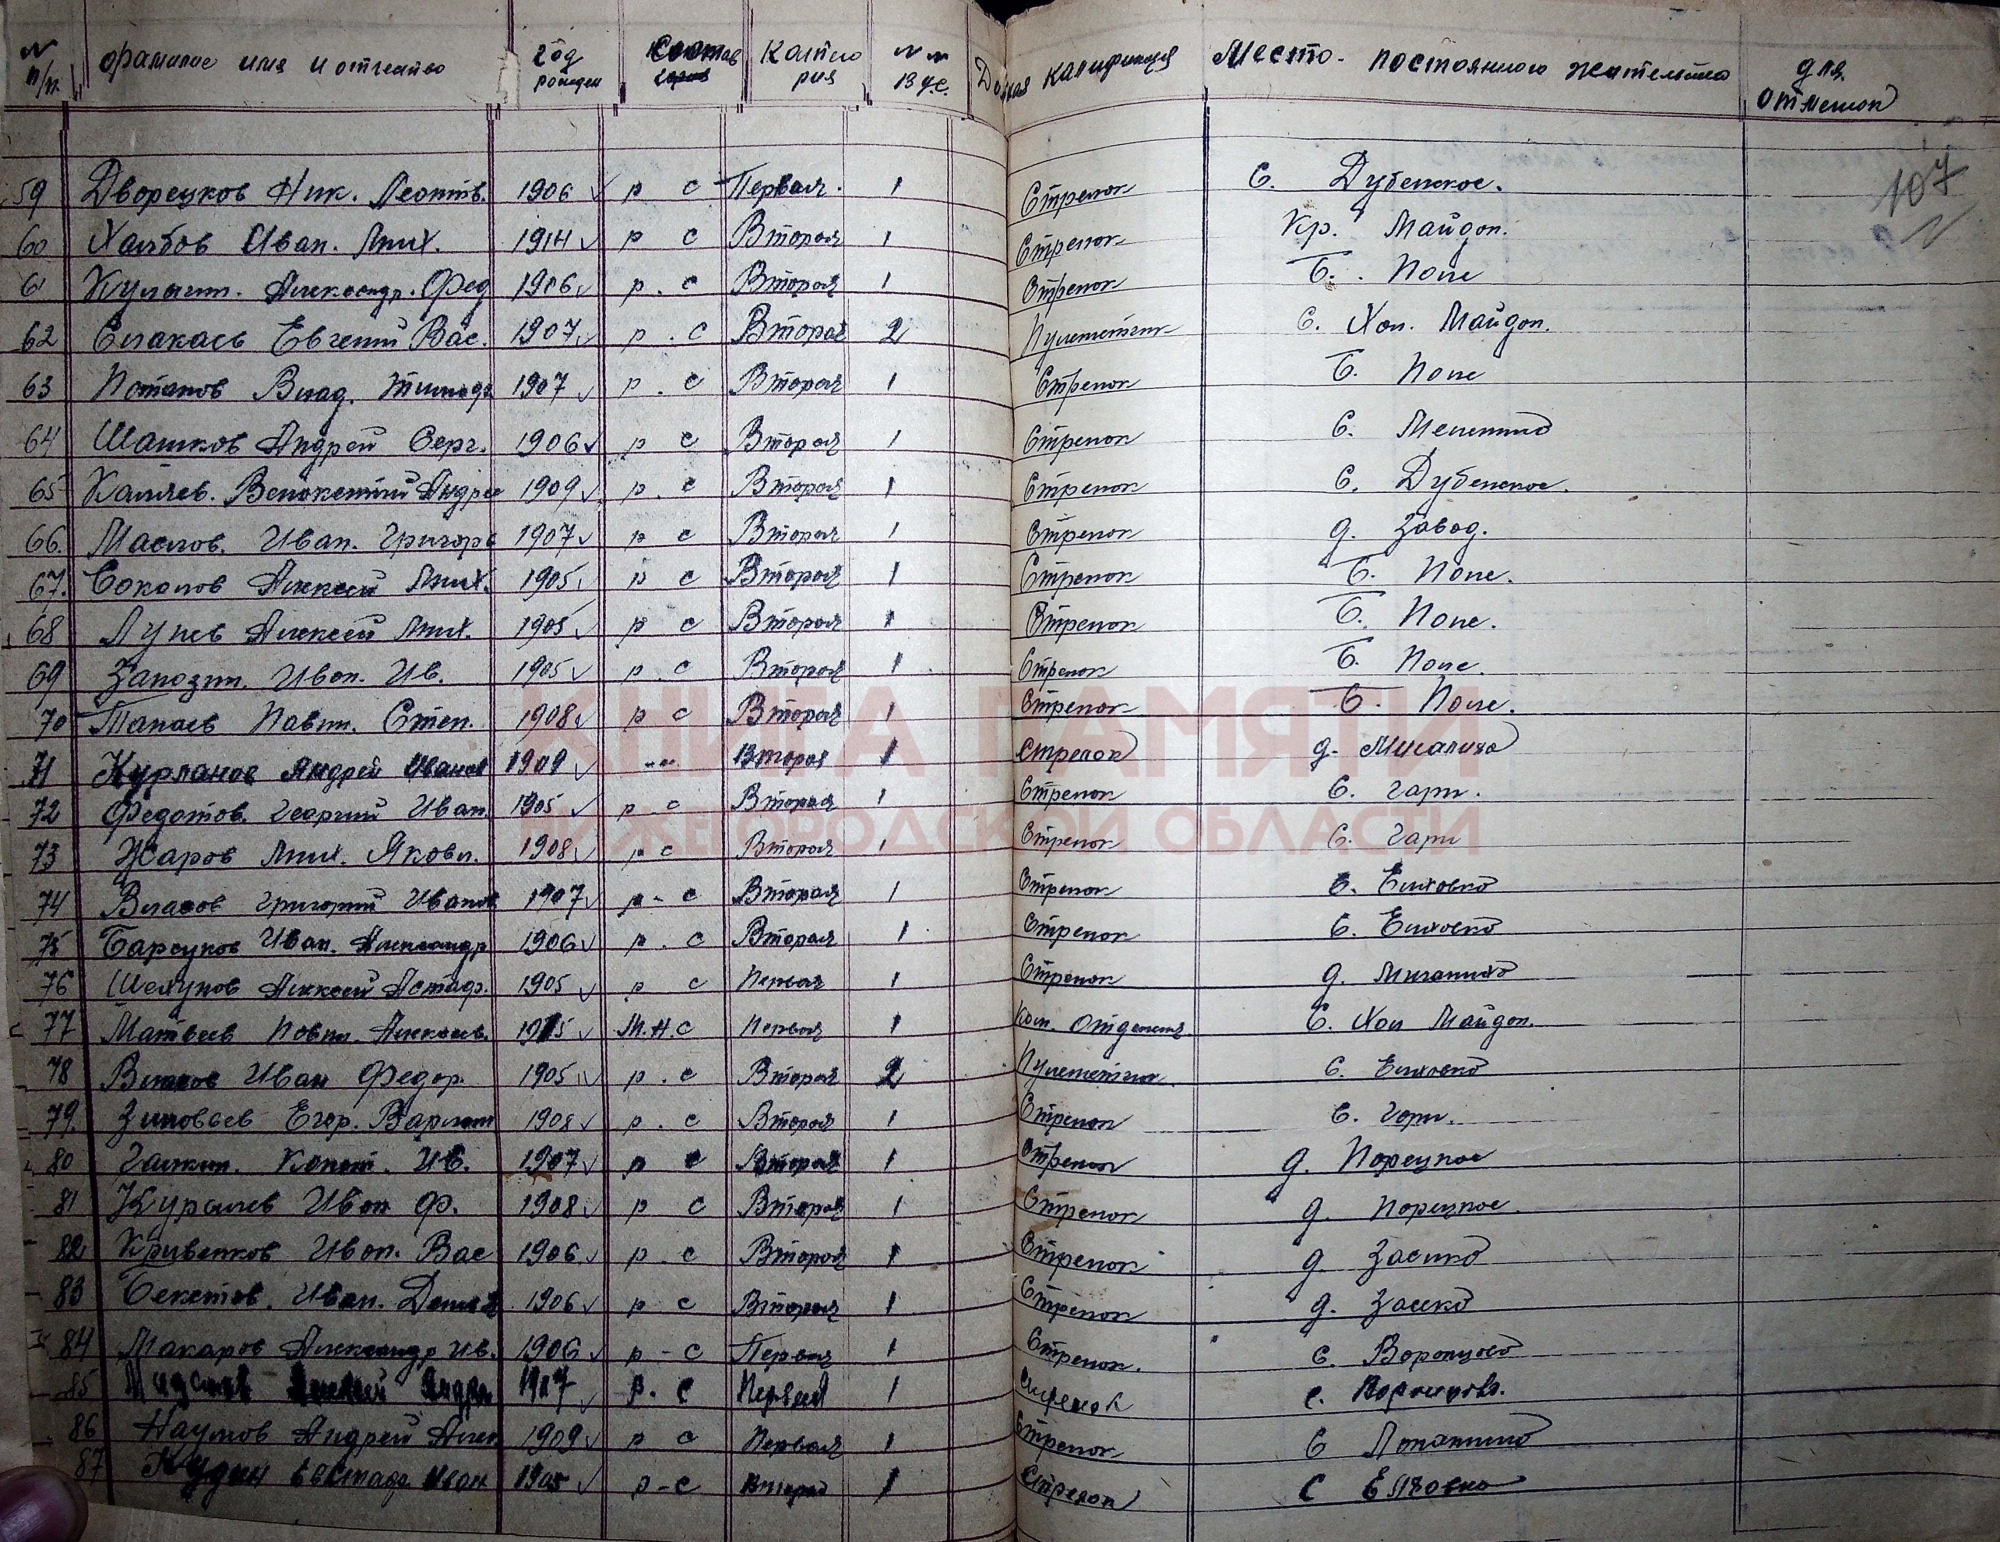 № п/п. Фамилие имя и отчество Год рожден Состав Катего рия №№ В.У.С. квалификация Место постоянного жительства для отметок
107
59 Дворецков Ник. Леонтв. 1906 р с Первая. 1 Стрелок С. Дубенское.
60 Иван. Мих. 1914 р с Вторая 1 Стрелок Кр. Майдан.
61 Александр. Фед 1906 р. с Вторая 1 Стрелок Б. Поле
62 Евгений Вас. 1907 р. с Вторая 2 Пулеметчик С. Хол. Майдан.
63 Потапов Влад. 1907 р. с Вторая 1 Стрелок Б. Поле
64 Шашков Андрей Серг. 1906 р с Вторая 1 Стрелок С.
65 Каляев. Андрее 1909 р. с Вторая 1 Стрелок С. Дубенское.
66. Маслов. Иван. Григорв 1907 р с Вторая 1 Стрелок д. Завод.
67. Соколов Алексей Мих. 1905 р с Вторая 1 Стрелок Б. Поле.
68 Лунев Алексей Мих. 1905 р с Вторая 1 Стрелок Б. Поле.
69 Занозин. Иван. Ив. 1905 р. с Вторая 1 Стрелок Б. Поле.
70 Танаев Павел. Степ. 1908 р с Вторая 1 Стрелок Б. Поле.
КНИГА ПАМЯТИ
71 Курланов Андрей Иванов 1909 -"- Вторая 1 Стрелок д. Мигалиха
72 Федотов. Георгий Иван. 1905 р. с Вторая 1 Стрелок С. Гари.
НИЖЕГОРОДСКОЙ ОБЛАСТИ
73 Жаров Мих. Яковл. 1908 р с Вторая 1 Стрелок С. Гари
74 Власов Григорий Иванов 1907 р - с Вторая 1 Стрелок С. Елховка
75 Барсуков Иван. Александр 1906 р. с Вторая 1 Стрелок С. Елховка
76 Шелупов Алексей Астаф. 1905 р с Первая 1 Стрелок д. Мигалиха
77 Матвеев Павел. Алексеев. 1915 М.Н.С Первая 1 Ком. Отделения. С. Хол Майдан.
78 Власов Иван Федор. 1905 р. с Вторая 2 Пулеметчик С. Елховка
79. Зиновьев Егор. Варлам 1908 р. с Вторая 1 Стрелок С. Гари.
80 Галкин. Ив. 1907 р с Вторая 1 Стрелок д. Порецкое
81 Иван Ф. 1908 р с Вторая 1 Стрелок д. Порецкое.
82 Кривенков Иван. Вас 1906 р. с Вторая 1 Стрелок д. Засека
83 Бекетов. Иван. 1906 р - с Вторая 1 Стрелок д. Засека
84 Макаров Александр Ив. 1906 р - с Первая 1 Стрелок. С. Воронцово
85 Андре 1907 р. с Первая 1 Стрелок с.
86 Наумов Андрей Алек 1909 р с Первая 1 Стрелок С Лопатино
87 Евстафе Иван 1905 р - с Вторая 1 Стрелок С Елховка